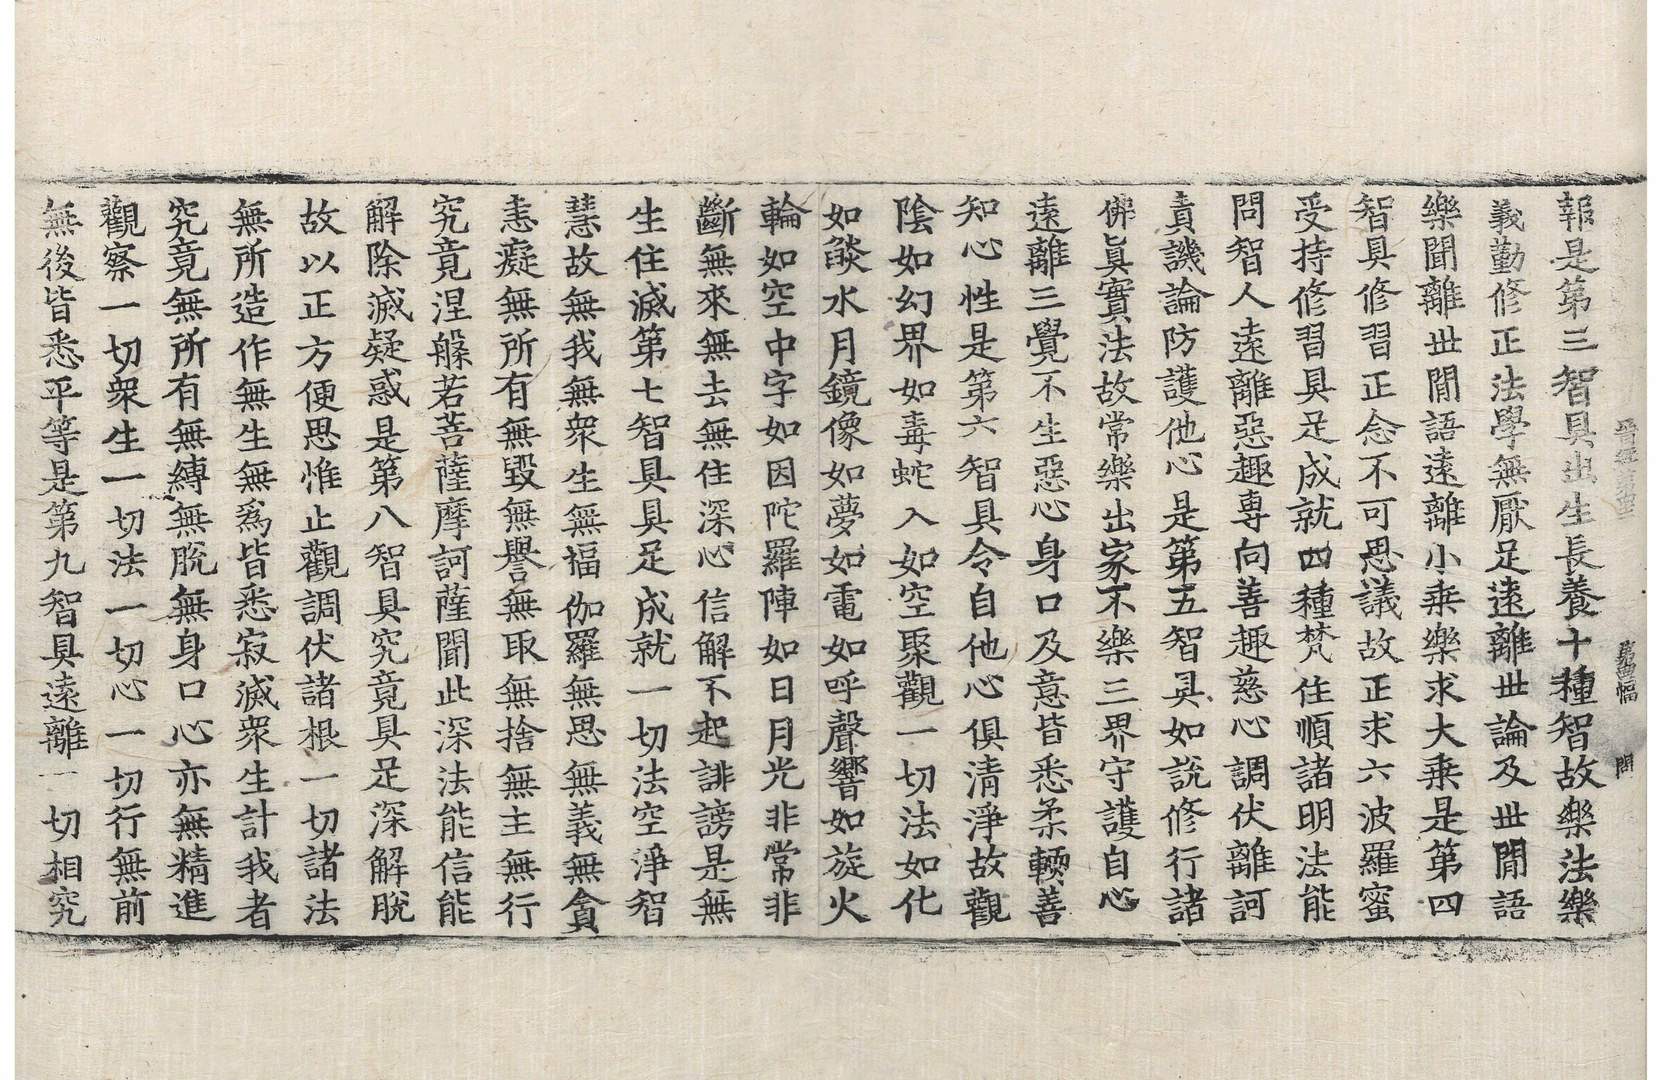 報是第三智具出生長養十種智故樂法樂
義勤修正法學無厭足遠離世論及世閒語
樂聞離世閒語遠離小乘樂求大乘是第四
智具修習正念不可思議故正求六波羅蜜
受持修習具足成就四種梵住順諸明法能
問智人遠離惡趣專向善趣慈心調伏離訶
責譏論防護他心是第五智具如說修行諸
佛眞實法故常樂出家不樂三界守護自心
遠離三覺不生惡心身口及意皆悉柔輭善
知心性是第六智具令自他心俱清淨故觀
陰如幻界如毒蛇入如空聚觀一切法如化
如燄水月鏡像如夢如電如呼聲響如旋火
輪如空中字如因陀羅陣如日月光非常非
斷無來無去無住深心信解不起誹謗是無
生住滅第七智具具足成就一切法空淨智
慧故無我無衆生無福伽羅無思無義無貪
恚癡無所有無毀無譽無取無捨無主無行
究竟涅槃若菩薩摩訶薩聞此深法能信能
解除滅疑惑是第八智具究竟具足深解脫
故以正方便思惟止觀調伏諸根一切諸法
無所造作無生無爲皆悉寂滅衆生計我者
究竟無所有無縛無脫無身口心亦無精進
觀察一切衆生一切法一切心一切行無前
無後皆悉平等是第九智具遠離一切相究